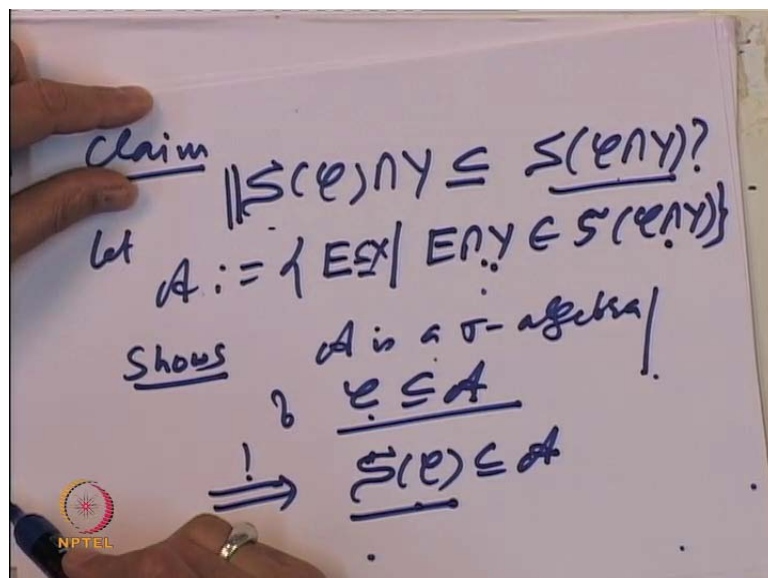 Claim
||S(𝒞)∩Y ⊆ S(𝒞∩Y)?
let A := { E⊆X | E∩Y ∈ S(𝒞∩Y)}
Shows A is a σ-algebra
& 𝒞 ⊆ A
! ⟹ S(𝒞) ⊆ A
NPTEL